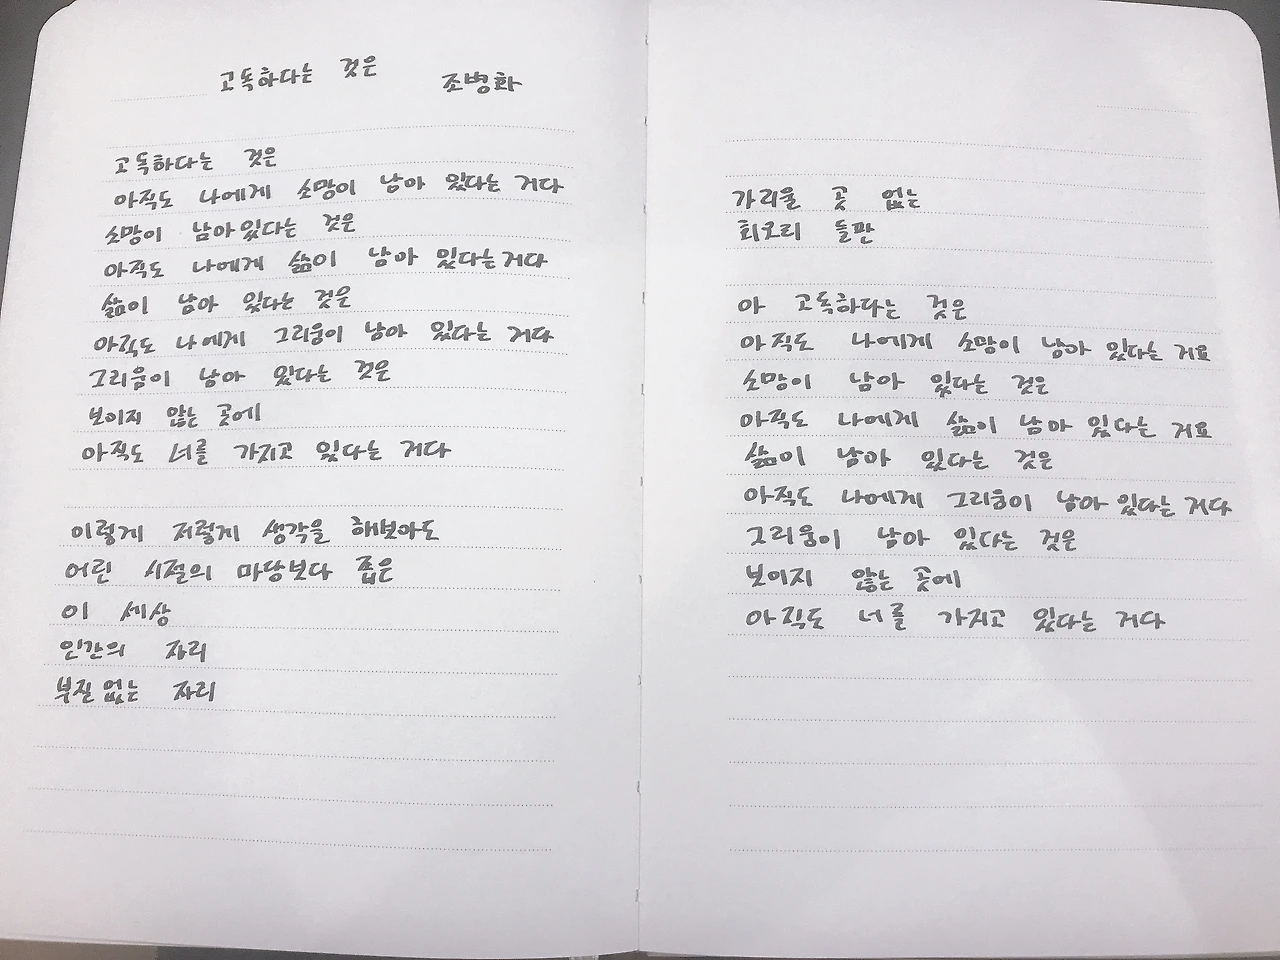 고독하다는 것은 조병화
고독하다는 것은
아직도 나에게 소망이 남아 있다는 거다
소망이 남아있다는 것은
아직도 나에게 삶이 남아 있다는거다
삶이 남아 있다는 것은
아직도 나에게 그리움이 남아 있다는 거다
그리움이 남아 있다는 것은
보이지 않는 곳에
아직도 너를 가지고 있다는 거다
이렇게 저렇게 생각을 해보아도
어린 시절의 마당보다 좁은
이 세상
인간의 자리
부질없는 자리
가리울 곳 없는
회오리 들판
아 고독하다는 것은
아직도 나에게 소망이 남아 있다는 거요
소망이 남아 있다는 것은
아직도 나에게 삶이 남아 있다는 거요
삶이 남아 있다는 것은
아직도 나에게 그리움이 남아 있다는 거다
그리움이 남아 있다는 것은
보이지 않는 곳에
아직도 너를 가지고 있다는 거다